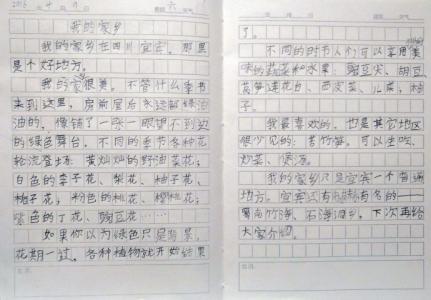 2016 4 11 六
我的家乡
我的家乡在四川宜宾。那里
是个好地方。
我的家很美。不管什么季节
来到这里,房前屋后永远都绿油
油的,像铺了一张一眼望不到边
的绿色舞台,不同的季节各种花
轮流登场:黄灿灿的野油菜花;
白色的李子花、梨花、柚子花、
柚子花;粉色的桃花、樱桃花;
紫色的丁花、豌豆花……
如果你以为绿色只是背景,
花期一过,各种植物就开始结果
了。
不同的时节人们可以享用美
味的蔬菜和水果。豌豆尖、胡豆、
莴笋莲花白、西皮菜、儿菜;柚
子。
我最喜欢的,也是其它地区
很少见的:苦竹笋。可以生吃、
炒菜、煲汤。
我的家乡只是宜宾一个普通
地方。宜宾还有有名的——
蜀南竹海、石海洞乡,下次再给
大家介绍。